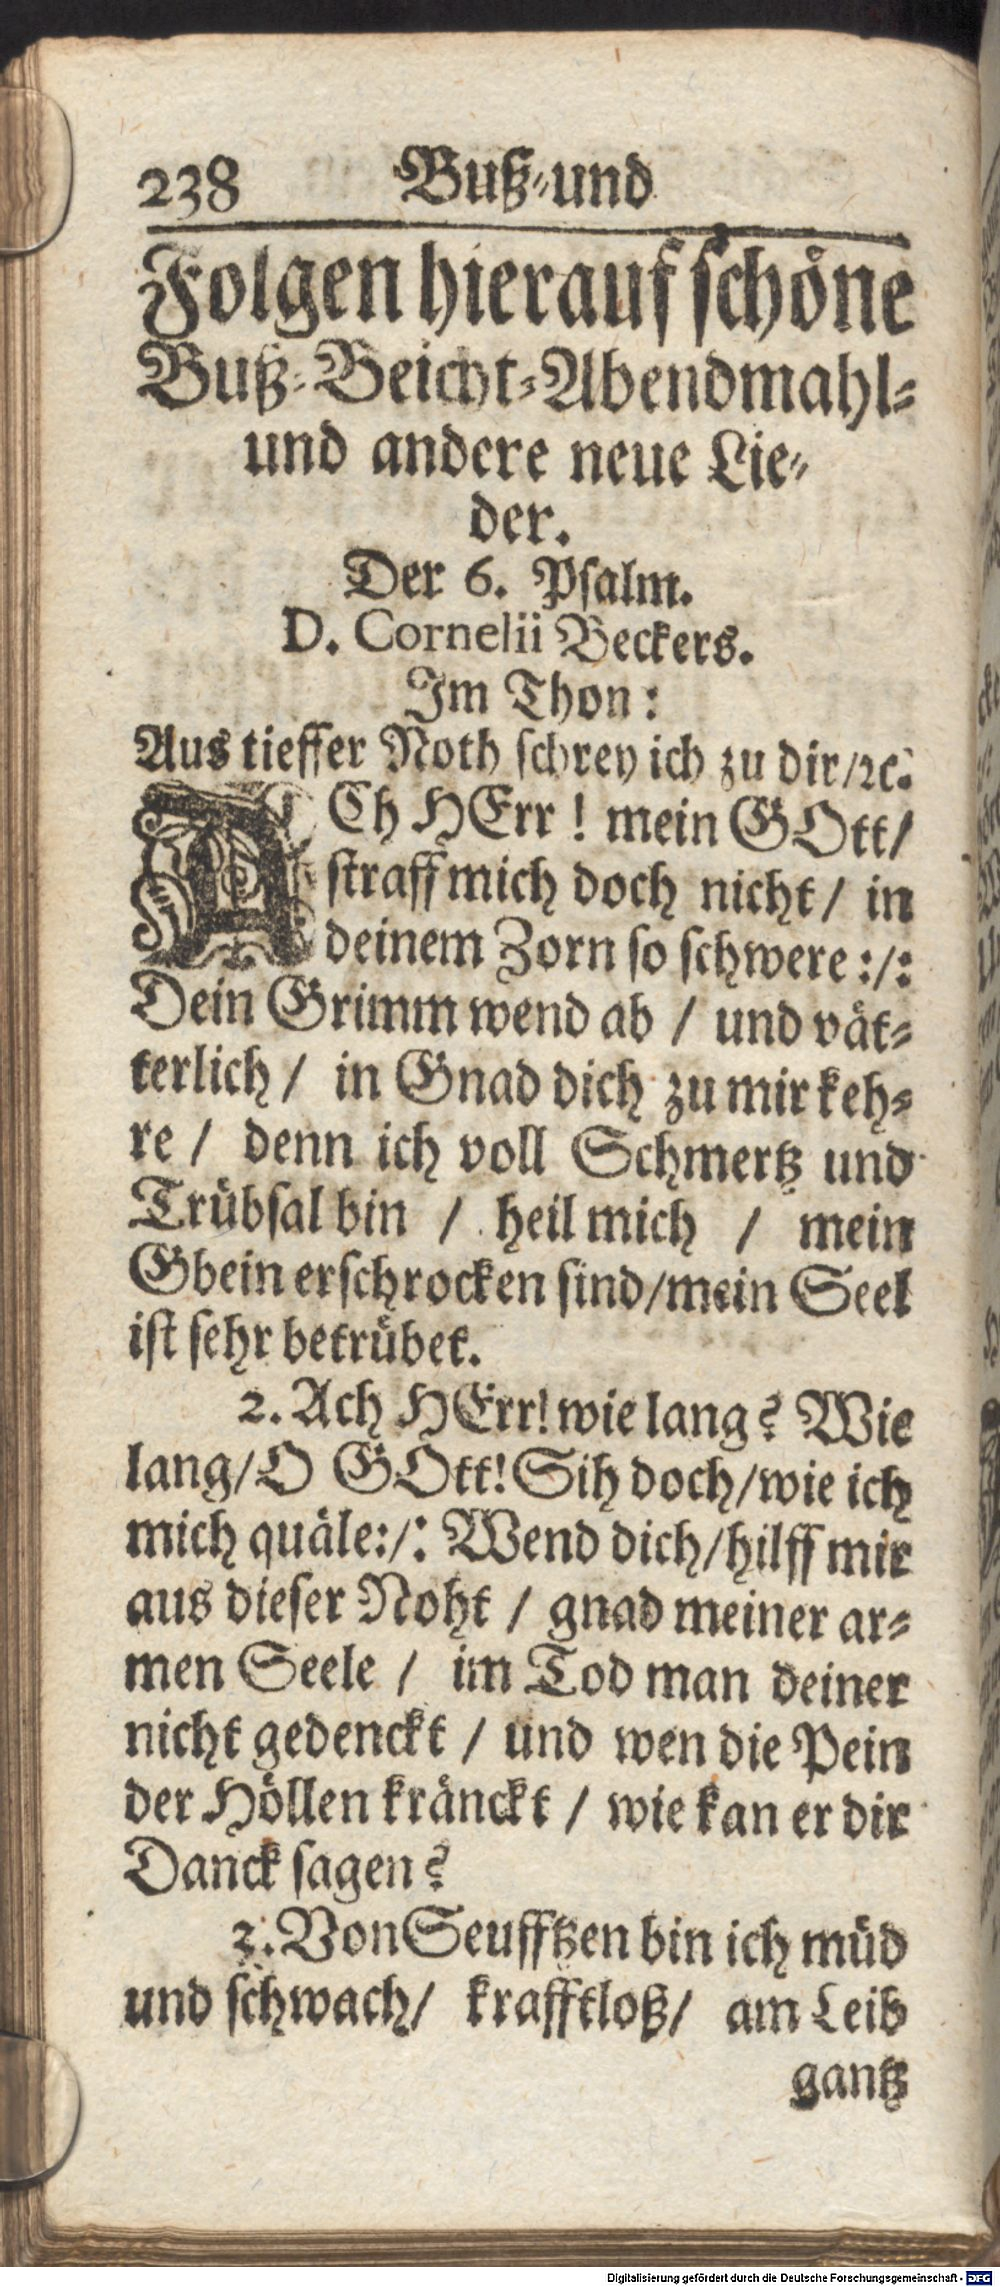 238 Buß-und
Folgen hierauf schöne
Buß-Beicht-Abendmahl-
und andere neue Lie-
der.
Der 6. Psalm.
D. Cornelii Beckers.
Im Thon:
Aus tieffer Noth schrey ich zu dir/ꝛc.
ACh HErr! mein GOtt/
straff mich doch nicht/ in
deinem Zorn so schwere:/:
Dein Grimm wend ab / und vät-
terlich / in Gnad dich zu mir keh-
re / denn ich voll Schmertz und
Trübsal bin / heil mich / mein
Gbein erschrocken sind/mein Seel
ist sehr betrübet.
2. Ach HErr! wie lang? Wie
lang/O GOtt! Sih doch/wie ich
mich quäle:/: Wend dich/hilff mir
aus dieser Noht / gnad meiner ar-
men Seele / im Tod man deiner
nicht gedenckt / und wen die Pein
der Höllen kränckt / wie kan er dir
Danck sagen?
3. Von Seufftzen bin ich müd
und schwach/ krafftloß/ am Leib
gantz
Digitalisierung gefördert durch die Deutsche Forschungsgemeinschaft - DFG